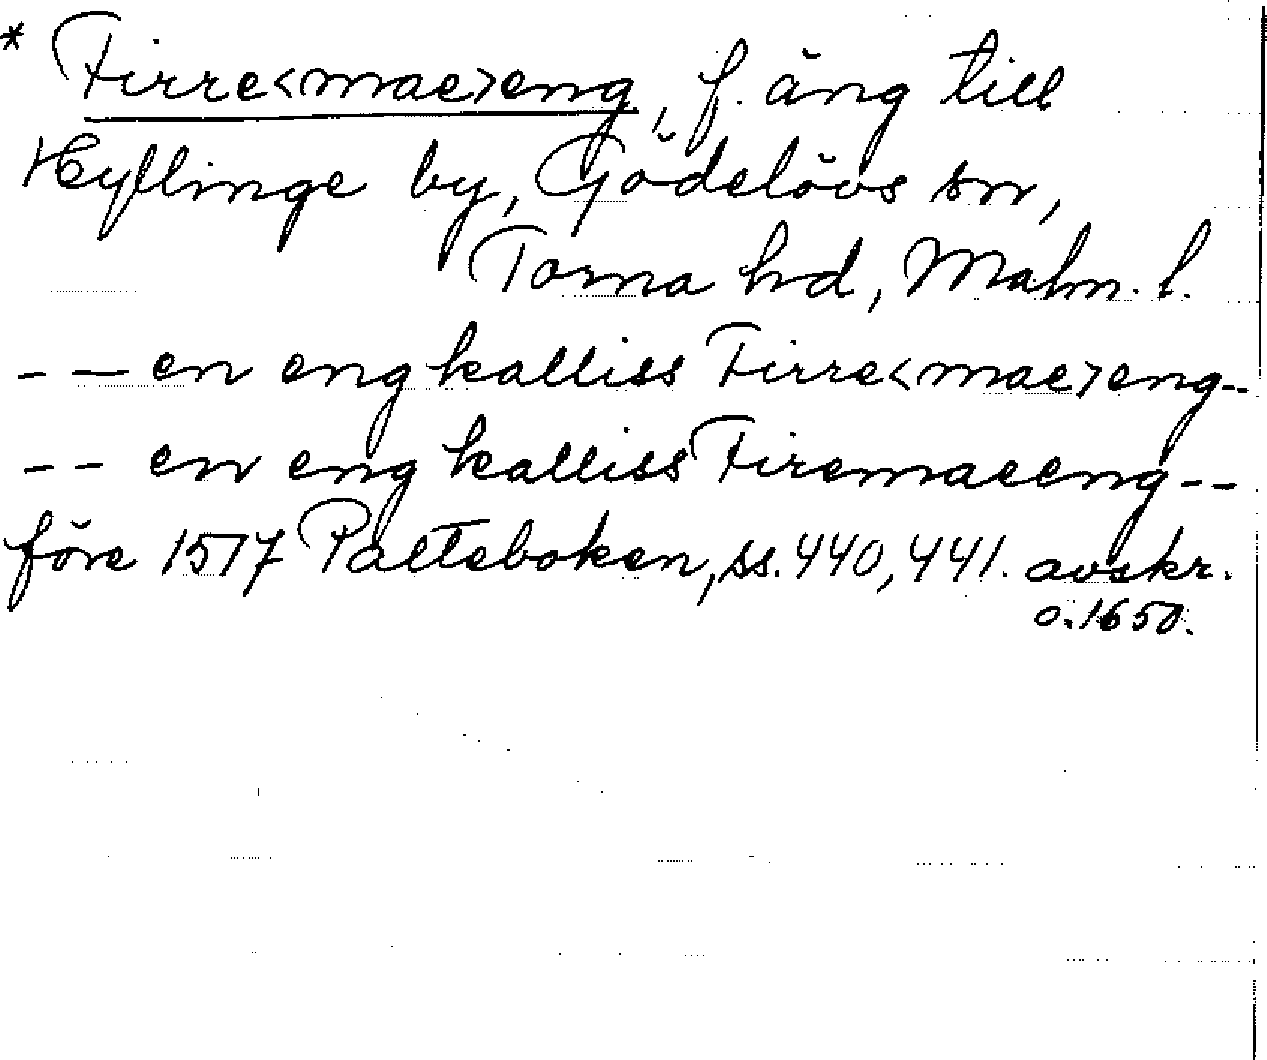 * Firre<mae>eng, f. äng till
Hyllinge by, Gödelövs sn,
Torna hd, Malm. l.
- — en eng kalliss Firre<mae>eng--
-- en eng kalliss Firemaeeng--
före 1517 Palteboken, ss. 440, 441. avskr.
o. 1650.